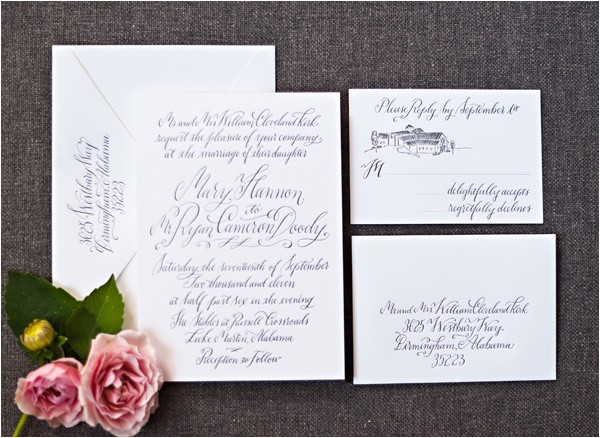 3625 Westbury Way
Birmingham, Alabama
35223
Mr and Mrs William Cleveland Kirk
request the pleasure of your company
at the marriage of their daughter
Mary Hannon
to
Mr Ryan Cameron Doody
Saturday, the seventeenth of September
Two thousand and eleven
at half past six in the evening
The Stables at Russell Crossroads
Lake Martin, Alabama
Reception to Follow
Please Reply by September 1st
M
delightfully accepts
regretfully declines
Mr and Mrs William Cleveland Kirk
3625 Westbury Way
Birmingham, Alabama
35223